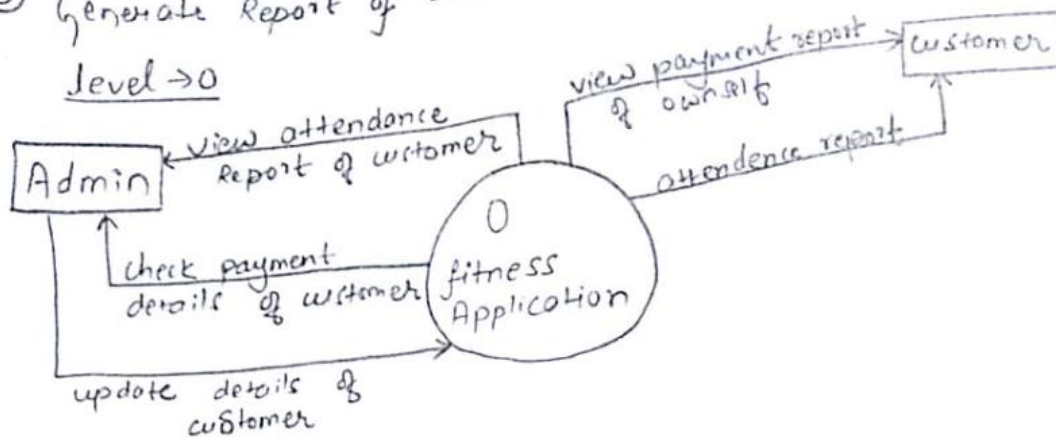 Generate Report of
level → 0
Admin
view attendance
Report of customer
check payment
details of customer
update details of
customer
0
fitness
Application
view payment report
of ownself
attendence report
customer